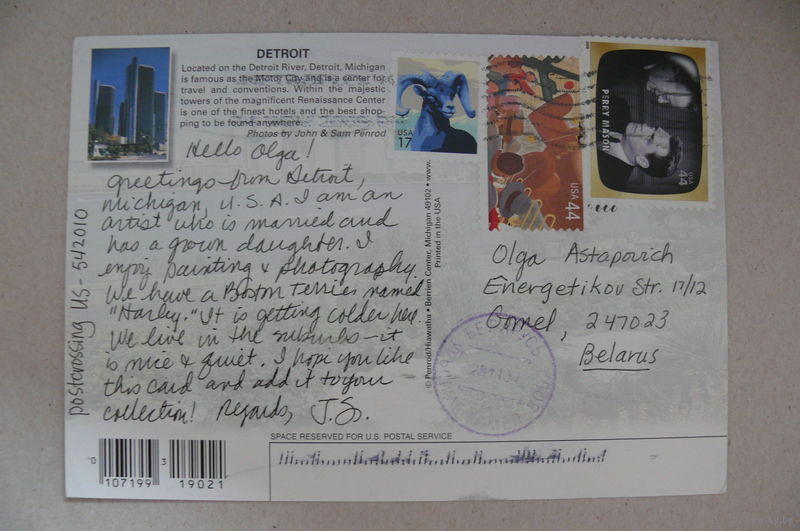 DETROIT
Located on the Detroit River, Detroit, Michigan
is famous as the Motor City and is a center for
travel and conventions. Within the majestic
towers of the magnificent Renaissance Center
is one of the finest hotels and the best shop-
ping to be found anywhere.
Photos by John & Sam Penrod
Hello Olga!
Greetings from Detroit,
Michigan, U.S.A. I am an
artist who is married and
has a grown daughter. I
enjoy painting & photography.
We have a Boston Terrier named
"Harley." It is getting colder here.
We live in the suburbs - it
is nice & quiet. I hope you like
this card and add it to your
collection! Regards, J.S.
postcrossing US-542010
© Penrod/Hiawatha • Berrien Center, Michigan 49102 • www.
Printed in the USA
USA
17
USA
44
PERRY MASON
USA
44
Olga Astapovich
Energetikov Str. 17/12
Gomel, 247023
Belarus
SPACE RESERVED FOR U.S. POSTAL SERVICE
0 107199 3 19021